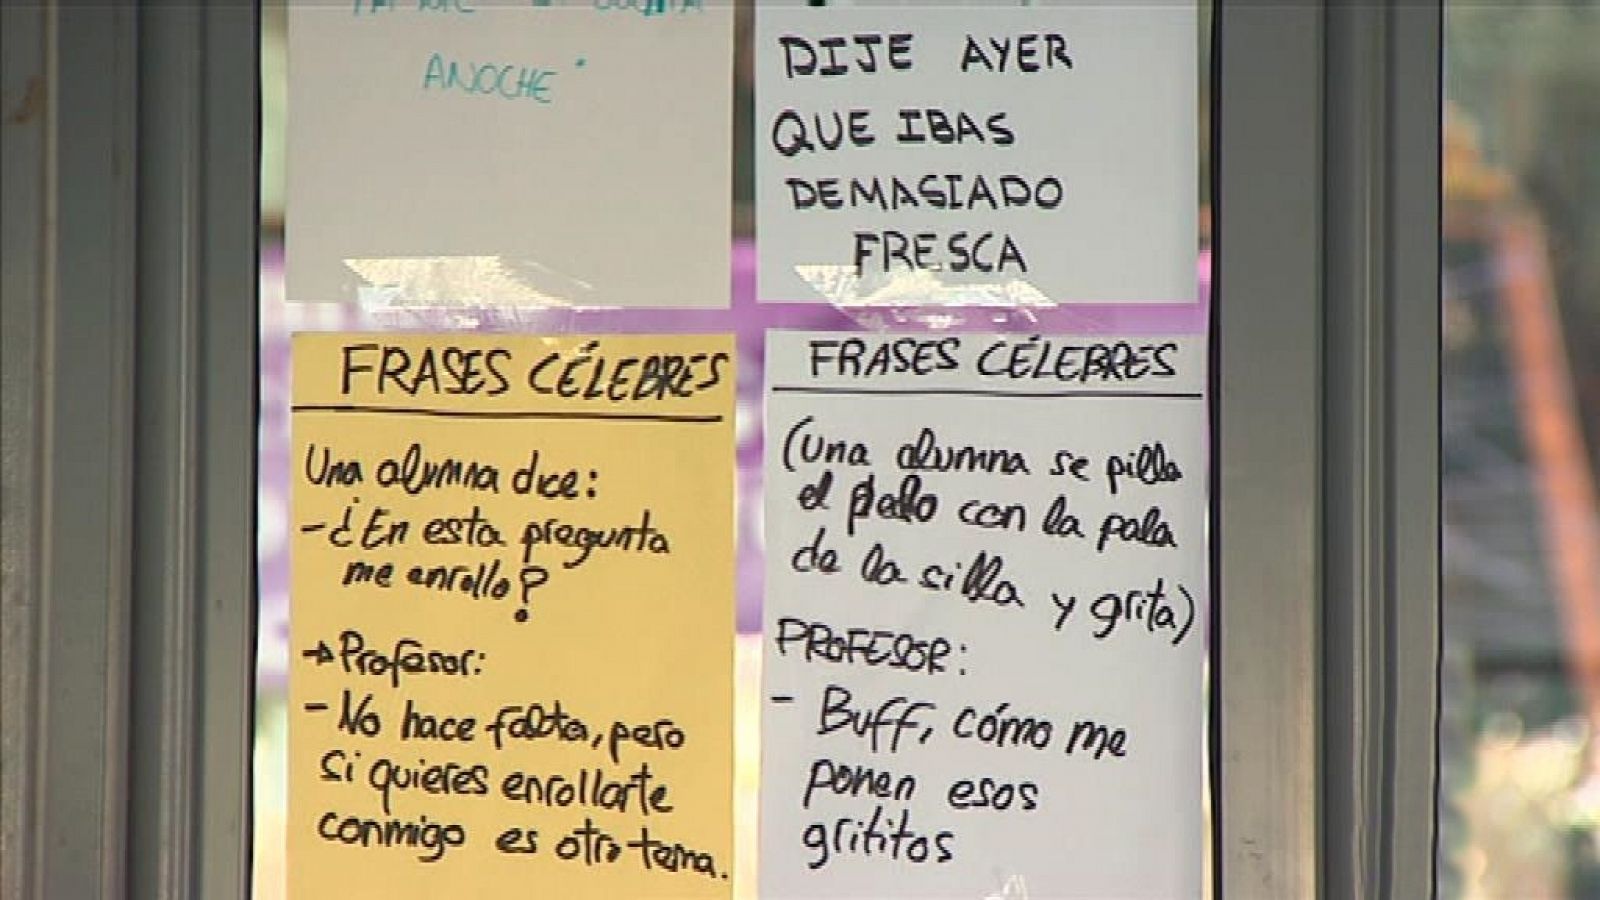 ANOCHE"
DIJE AYER
QUE IBAS
DEMASIADO
FRESCA
FRASES CÉLEBRES
Una alumna dice:
- ¿En esta pregunta
me enrollo?
→ Profesor:
- No hace falta, pero
si quieres enrollarte
conmigo es otro tema.
FRASES CÉLEBRES
(una alumna se pilla
el pelo con la pala
de la silla y grita)
PROFESOR:
- Buff, cómo me
ponen esos
grititos